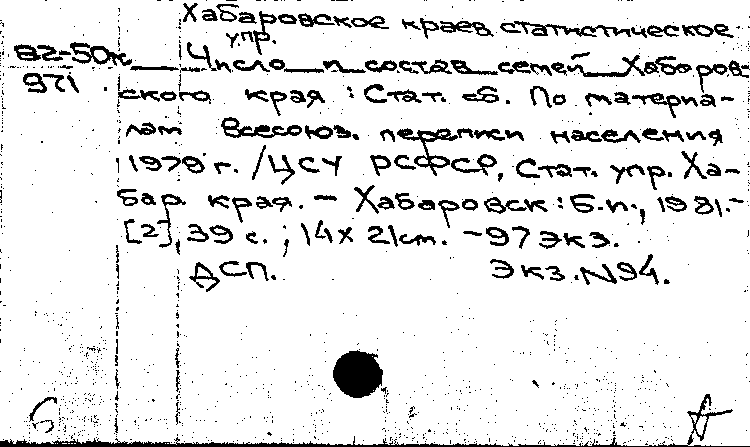 Хабаровское краев. статистическое
упр.
82-50к Число и состав семей Хабаров-
971 ского края : Стат. сб. По материа-
лам Всесоюз. переписи населения
1979 г. /ЦСУ РСФСР, Стат. упр. Ха-
бар. края. – Хабаровск : Б.и., 1981.-
[2], 39 с. ; 14х21 cm. – 97 экз.
ДСП. Экз. N94.